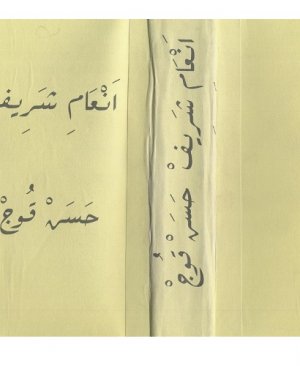 اَنْعَامِ شَرِيفْ
حَسَنْ قُوجْ
اَنْعَام شَرِيفْ حَسَنْ قُوجْ